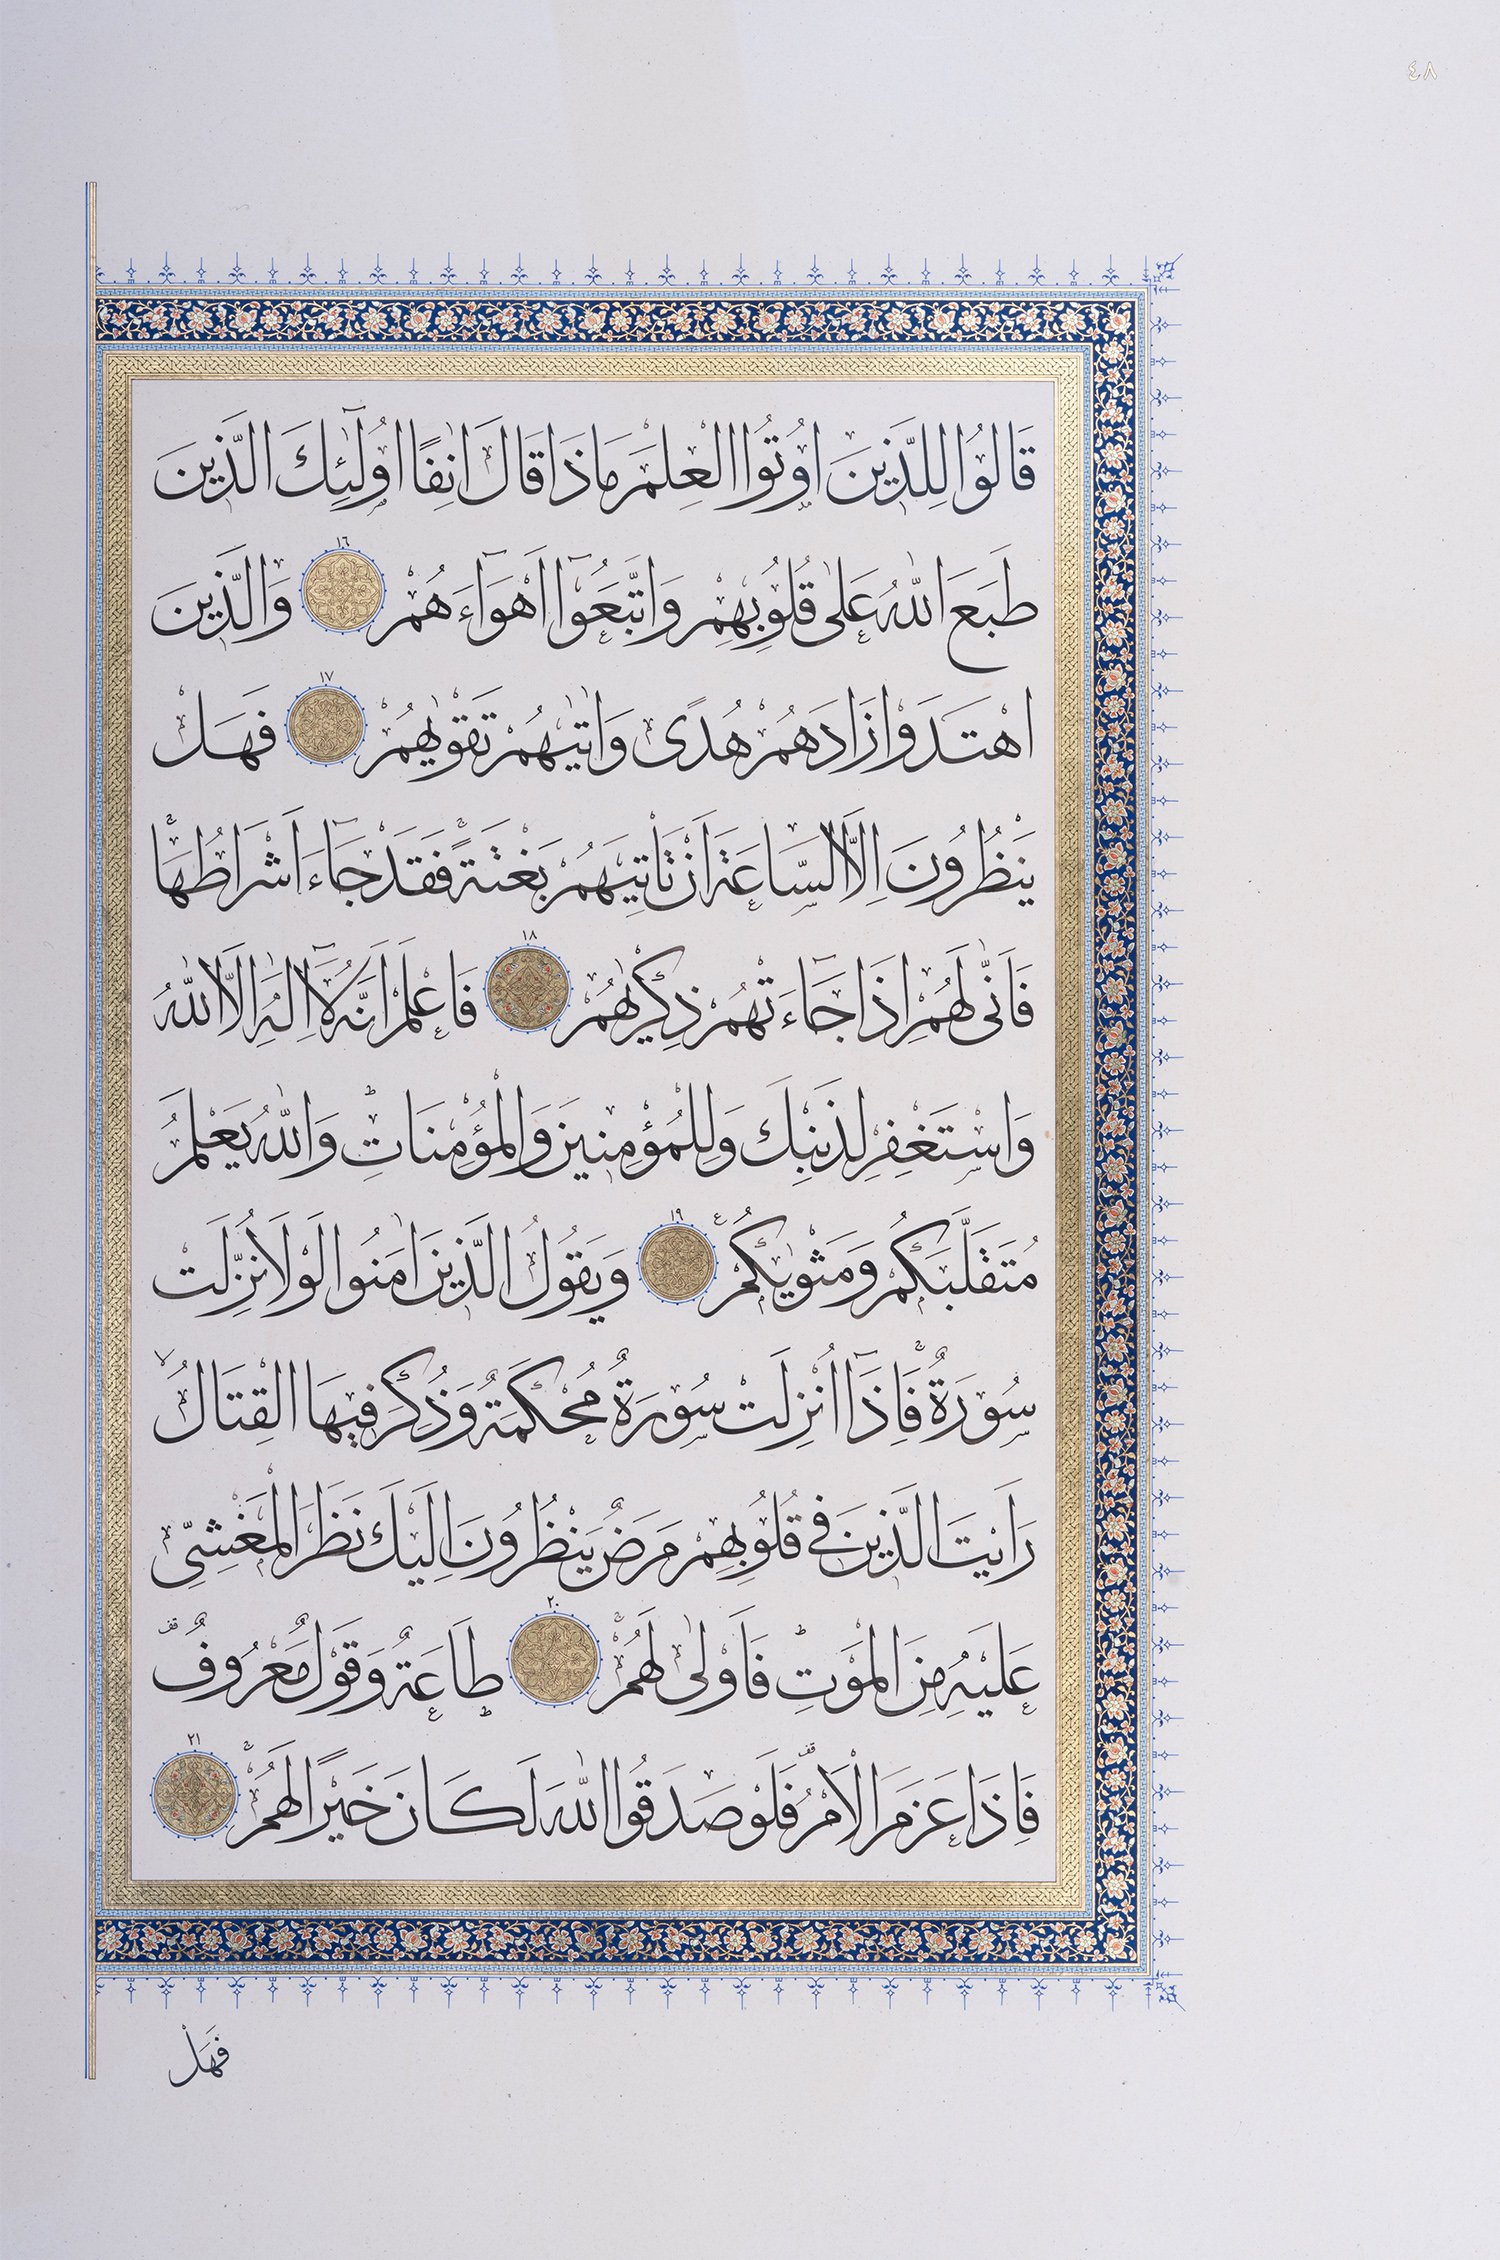 ٤٨
قَالُوا لِلَّذ۪ينَ اُو۫تُوا الْعِلْمَ مَاذَا قَالَ اٰنِفًا اُو۬لٰٓئِكَ الَّذ۪ينَ
طَبَعَ اللّٰهُ عَلٰى قُلُوبِهِمْ وَاتَّبَعُٓوا اَهْوَٓاءَهُمْ ١٦ وَالَّذ۪ينَ
اهْتَدَوْا زَادَهُمْ هُدًى وَاٰتٰيهُمْ تَقْوٰيهُمْ ١٧ فَهَلْ
يَنْظُرُونَ اِلَّا السَّاعَةَ اَنْ تَأْتِيَهُمْ بَغْتَةًۚ فَقَدْ جَٓاءَ اَشْرَاطُهَاۚ
فَاَنّٰى لَهُمْ اِذَا جَٓاءَتْهُمْ ذِكْرٰيهُمْ ١٨ فَاعْلَمْ اَنَّهُ لَٓا اِلٰهَ اِلَّا اللّٰهُ
وَاسْتَغْفِرْ لِذَنْبِكَ وَلِلْمُؤْمِن۪ينَ وَالْمُؤْمِنَاتِۜ وَاللّٰهُ يَعْلَمُ
مُتَقَلَّبَكُمْ وَمَثْوٰيكُمْ۟ ١٩ وَيَقُولُ الَّذ۪ينَ اٰمَنُوا لَوْلَا نُزِّلَتْ
سُورَةٌۚ فَاِذَٓا اُنْزِلَتْ سُورَةٌ مُحْكَمَةٌ وَذُكِرَ ف۪يهَا الْقِتَالُۙ
رَاَيْتَ الَّذ۪ينَ ف۪ي قُلُوبِهِمْ مَرَضٌ يَنْظُرُونَ اِلَيْكَ نَظَرَ الْمَغْشِيِّ
عَلَيْهِ مِنَ الْمَوْتِۜ فَاَوْلٰى لَهُمْۚ ٢٠ طَاعَةٌ وَقَوْلٌ مَعْرُوفٌ۠
فَاِذَا عَزَمَ الْاَمْرُ۠ فَلَوْ صَدَقُوا اللّٰهَ لَكَانَ خَيْرًا لَهُمْۚ ٢١
فَهَلْ